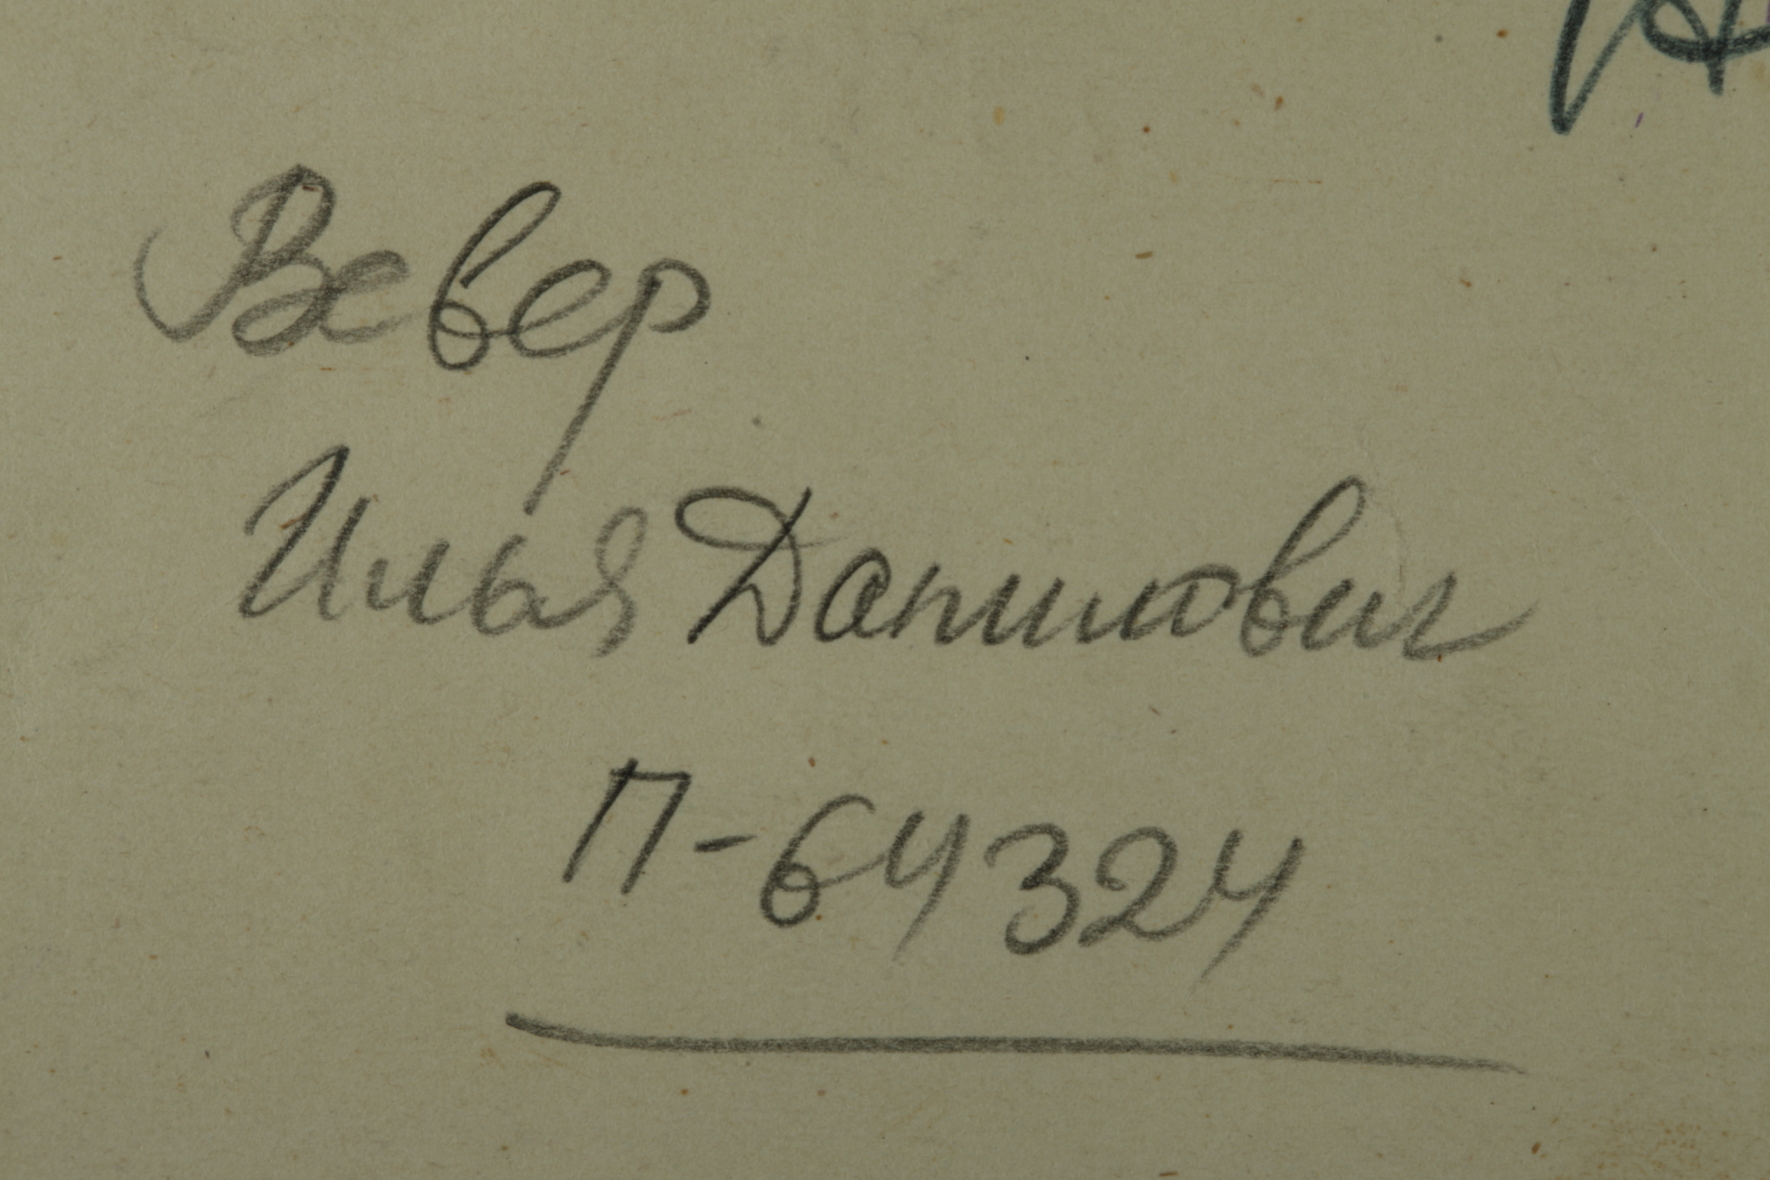 Вевер
Илья Данилович
П-64324